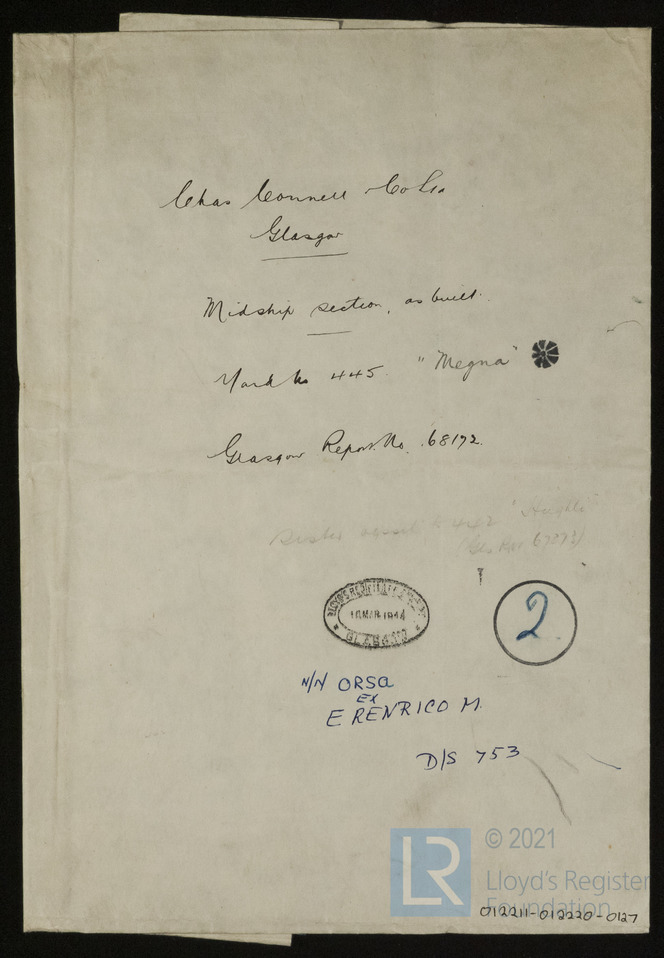 Chas Connell & Co Ld
Glasgow
Midship section, as built.
Yard No 445. "Megna"
Glasgow Report No. 68172.
Sister vessel No 442 "Hughli"
(Gls Rpt 67873)
LLOYD'S REGISTER OF SHIPPING
10 MAR 1944
GLASGOW
2
N/N ORSA
EX
E RENRICO M.
D/S 753
LR
© 2021
Lloyd's Register
Foundation
012211-012220-0127